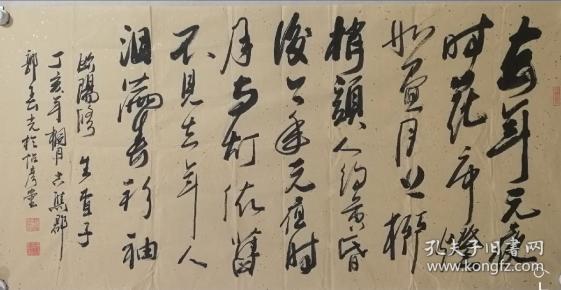 去年元夜
时花市燈
如畫月上柳
梢頭人约黄昏
後今年元夜时
月与灯依舊
不見去年人
泪滿春衫袖
欧陽修 生查子
丁亥年桐月古郡
郭光於怡堂
孔夫子旧书网
www.kongfz.com